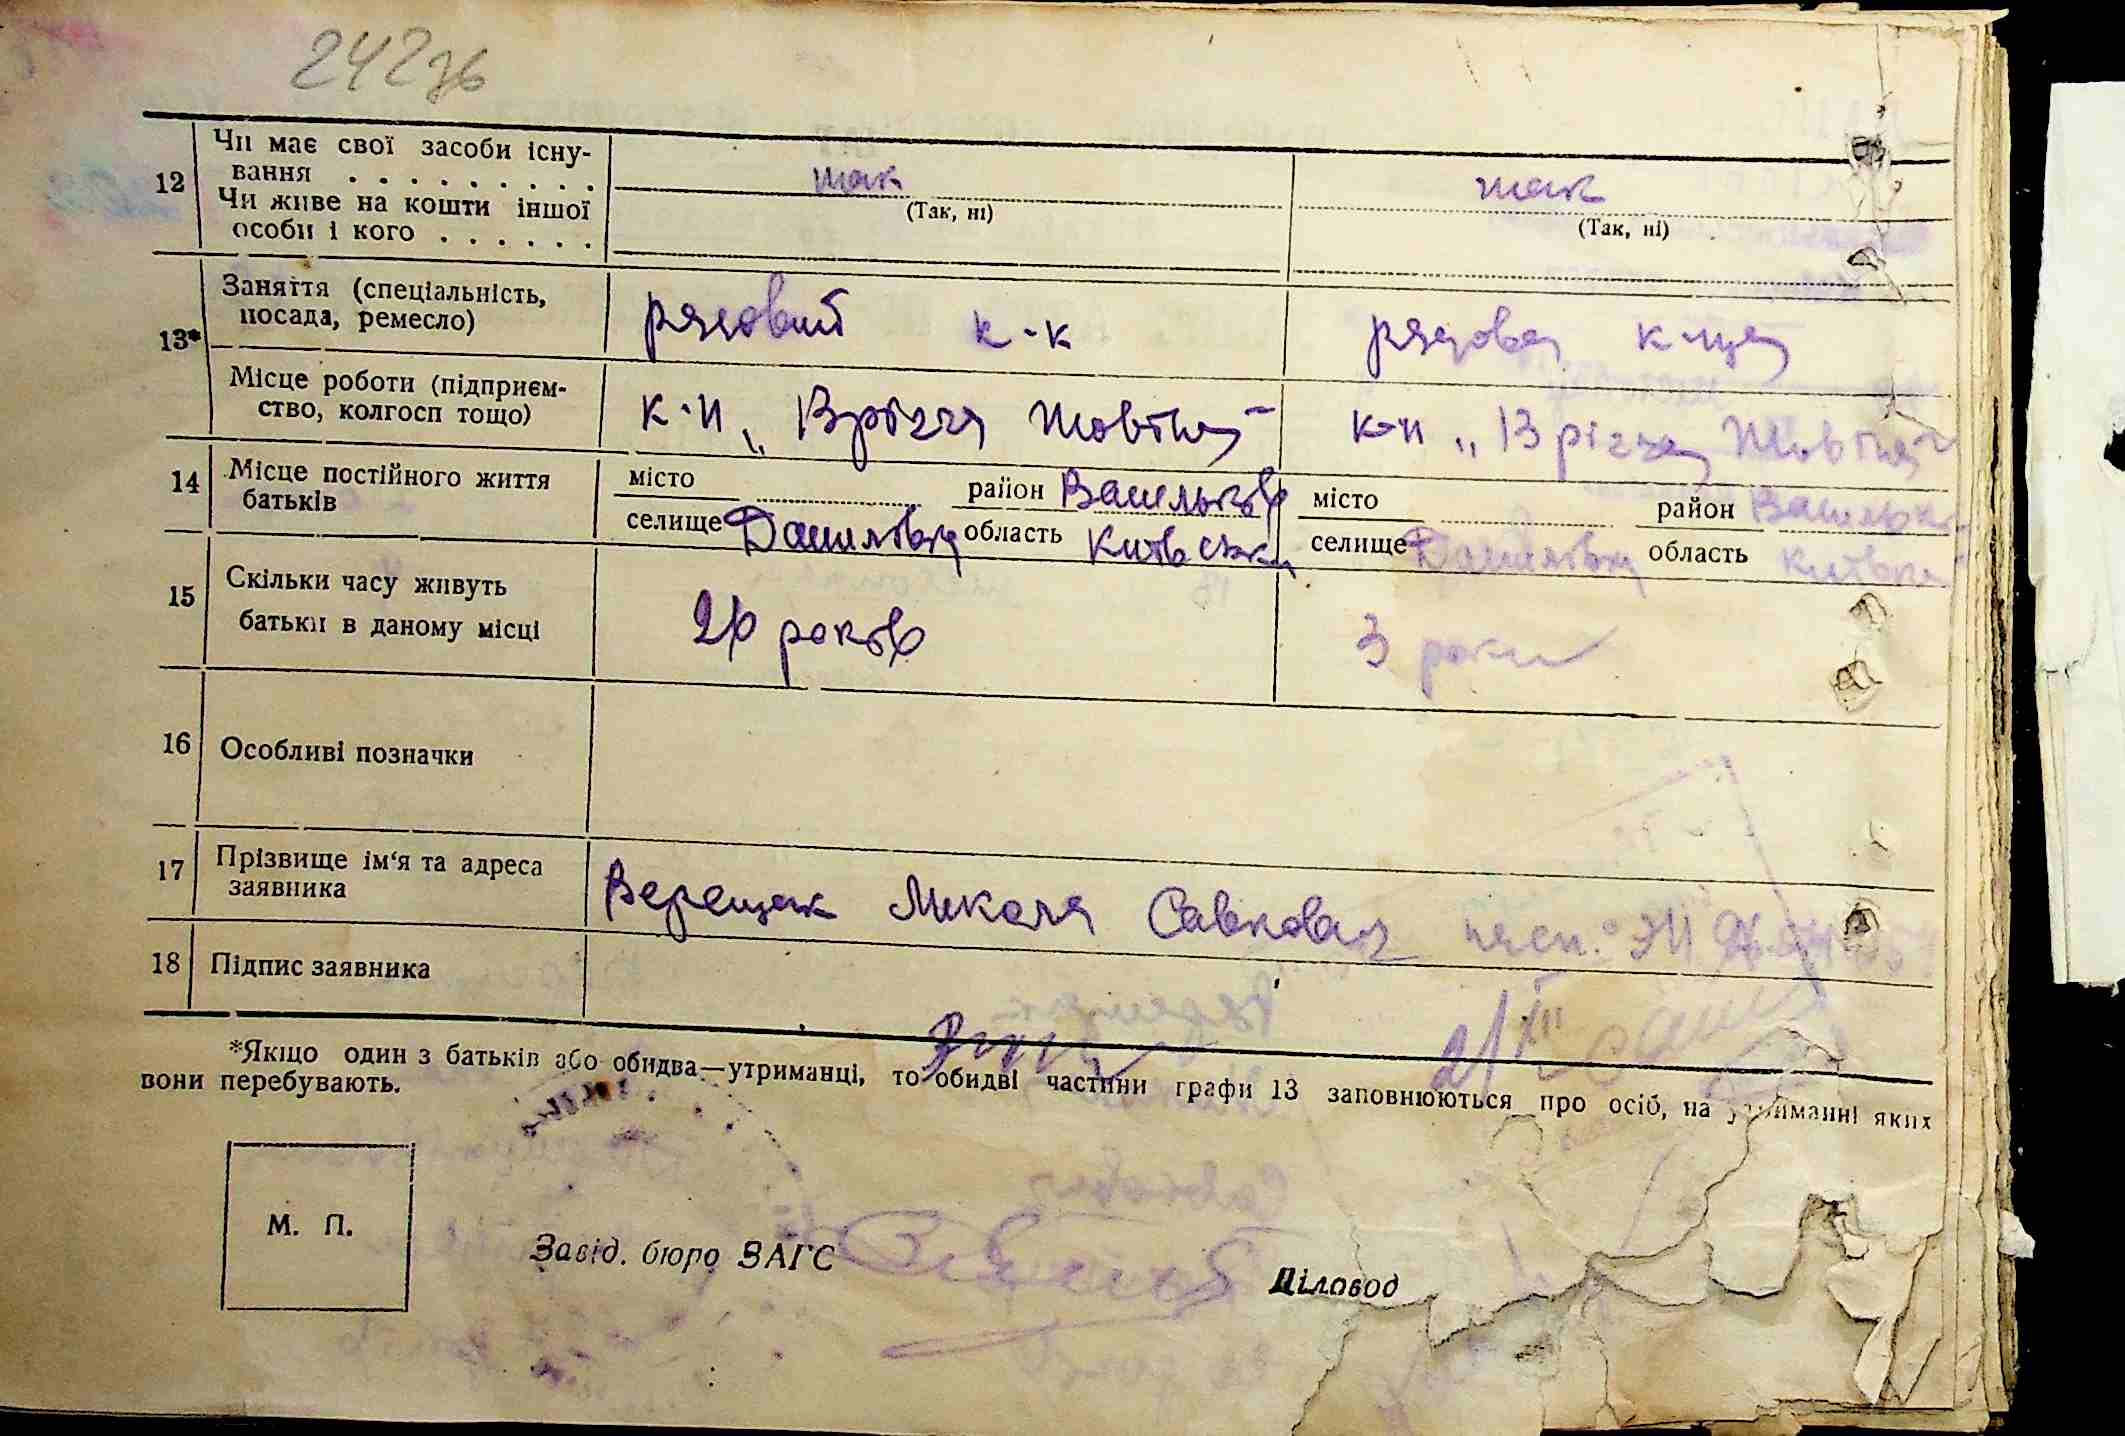 242зв
12
Чи має свої засоби існу-
вання . . . . . . . . .
так
так
(Так, ні)
(Так, ні)
Чи живе на кошти іншої
особи і кого . . . . . .
13*
Заняття (спеціальність,
посада, ремесло)
рядовий к-к
рядова к-ця
Місце роботи (підприєм-
ство, колгосп тощо)
к-п „ Вріччя Жовтня
к-п „ 13 річчя Жовтня
14
Місце постійного життя
батьків
місто район Васильків
місто район Васильків
селище Данилівка область Київська
селище Данилівка область Київська
15
Скільки часу живуть
батьки в даному місці
років
3 роки
16
Особливі позначки
17
Прізвище ім'я та адреса
заявника
Верещак Микола Савкович пасп.
18
Підпис заявника
*Якщо один з батьків або обидва—утриманці, то обидві частини графи 13 заповнюються про осіб, на утриманні яких
вони перебувають.
М. П.
Завід. бюро ЗАГС
Діловод